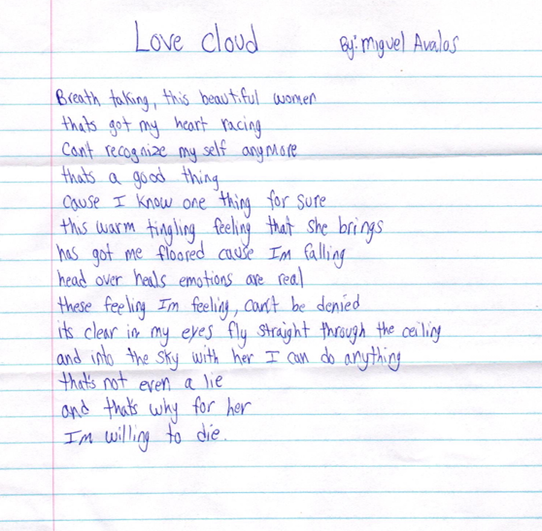 Love Cloud By: Miguel Avalos
Breath taking, this beautiful women
thats got my heart racing
Cant recognize my self anymore
thats a good thing
cause I know one thing for sure
this warm tingling feeling that she brings
has got me floored cause Im falling
head over heals emotions are real
these feeling Im feeling, can't be denied
its clear in my eyes fly straight through the ceiling
and into the sky with her I can do anything
that's not even a lie
and that's why for her
I'm willing to die.